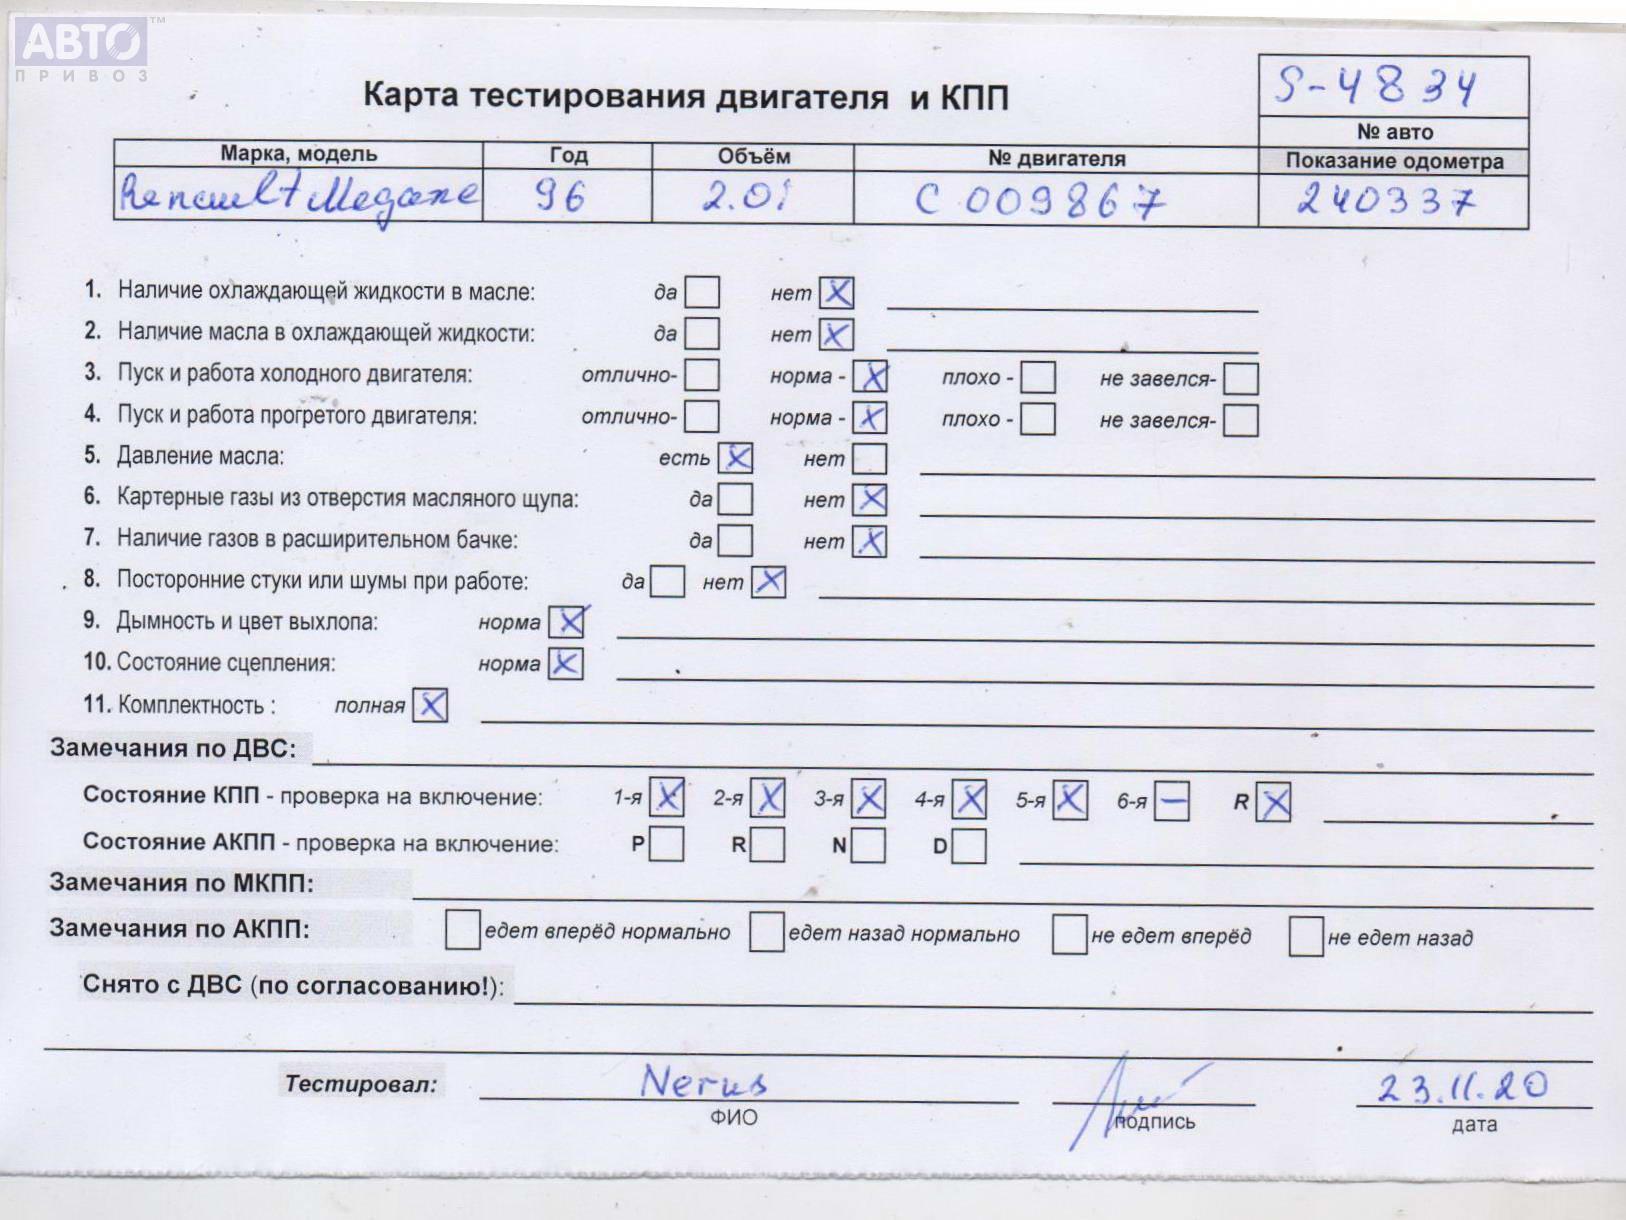 АВТО™
ПРИВОЗ
Карта тестирования двигателя и КПП
S-4834
№ авто
Марка, модель Год Объём № двигателя Показание одометра
Renault Megane 96 2.0i C 009867 240337
1. Наличие охлаждающей жидкости в масле: да нет X
2. Наличие масла в охлаждающей жидкости: да нет X
3. Пуск и работа холодного двигателя: отлично- норма - X плохо - не завелся-
4. Пуск и работа прогретого двигателя: отлично- норма - X плохо - не завелся-
5. Давление масла: есть X нет
6. Картерные газы из отверстия масляного щупа: да нет X
7. Наличие газов в расширительном бачке: да нет X
8. Посторонние стуки или шумы при работе: да нет X
9. Дымность и цвет выхлопа: норма X
10. Состояние сцепления: норма X
11. Комплектность : полная X
Замечания по ДВС:
Состояние КПП - проверка на включение: 1-я X 2-я X 3-я X 4-я X 5-я X 6-я – R X
Состояние АКПП - проверка на включение: P R N D
Замечания по МКПП:
Замечания по АКПП: едет вперёд нормально едет назад нормально не едет вперёд не едет назад
Снято с ДВС (по согласованию!):
Тестировал: Nerus 23.11.20
ФИО подпись дата